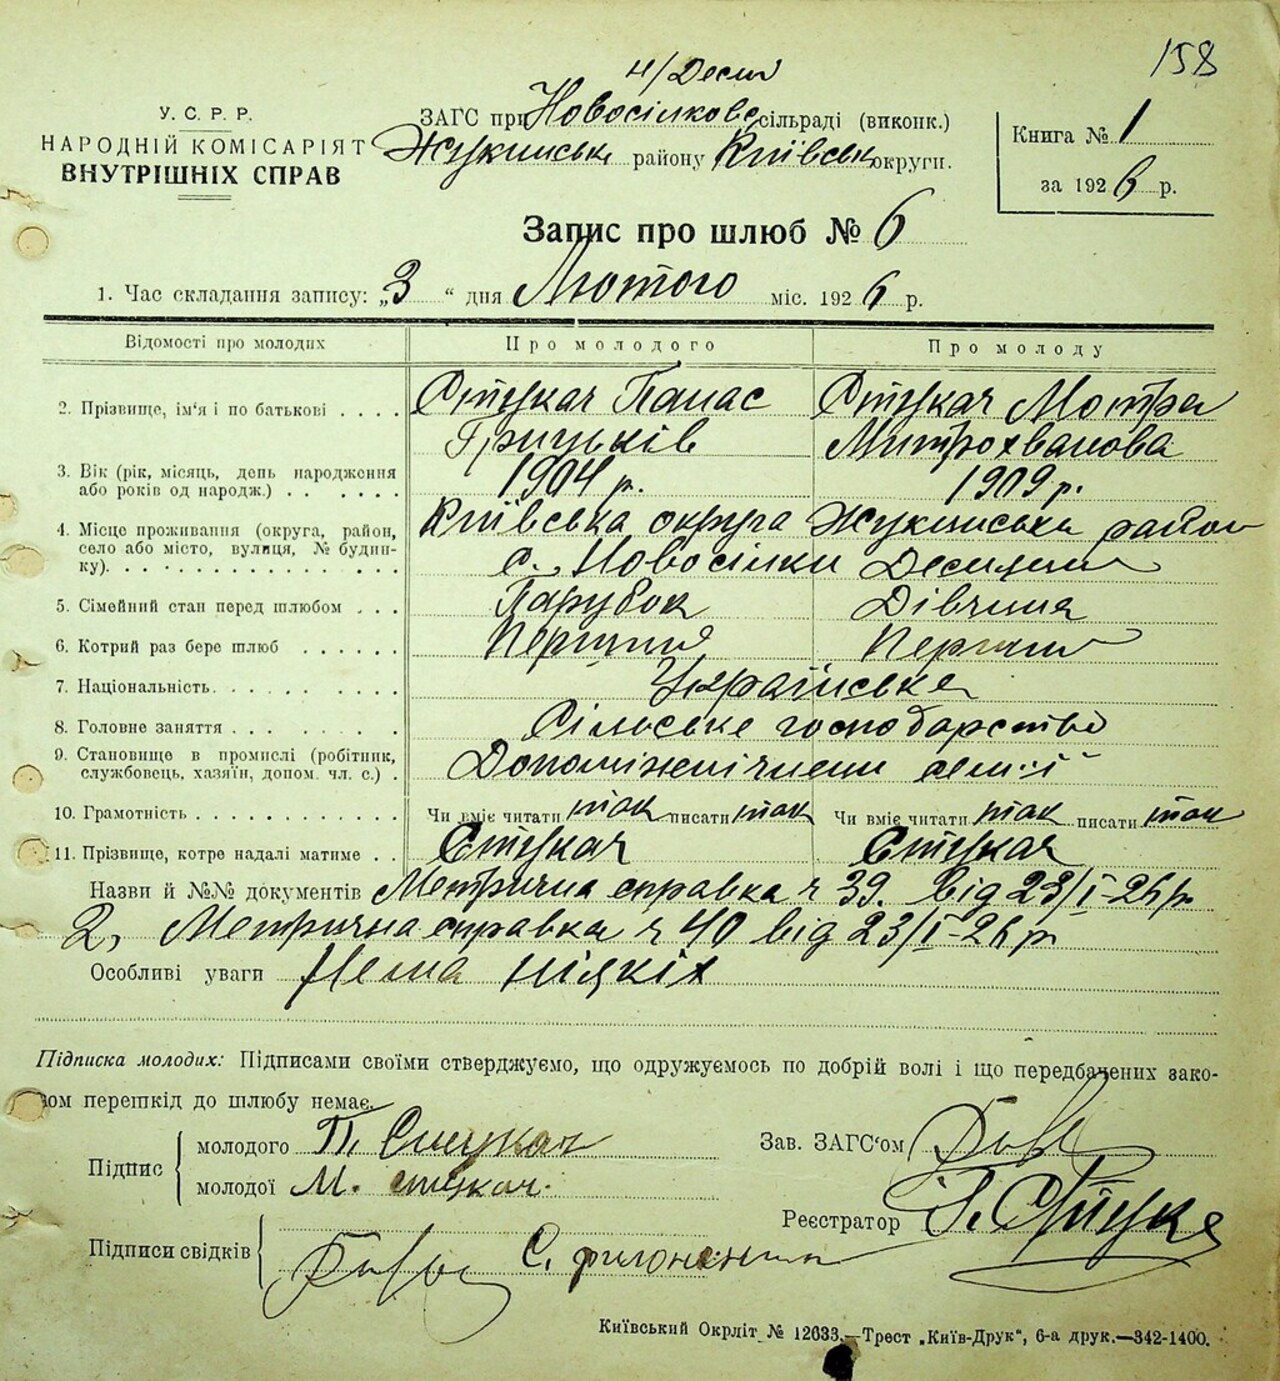 158
н/Десні
У. С. Р. Р.
НАРОДНІЙ КОМІСАРІЯТ
ВНУТРІШНІХ СПРАВ
ЗАГС при Новосілкове сільраді (виконк.)
Жукинськ району Київськ округи.
Книга № 1
за 1926 р.
Запис про шлюб № 6
1. Час складання запису: „3“ дня Лютого міс. 1926 р.
Відомості про молодих Про молодого Про молоду
2. Прізвище, ім'я і по батькові . . . . Стукач Панас Стукач Мотря
Грицьків Митрохванова
3. Вік (рік, місяць, день народження
або років од народж.) . . . . . . 1904 р. 1909 р.
4. Місце проживання (округа, район, Київська округа Жукинська район
село або місто, вулиця, № будин-
ку). . . . . . . . . . . . . с. Новосілки
5. Сімейний стан перед шлюбом . . . Парубок Дівчина
6. Котрий раз бере шлюб . . . . . . Перший Перший
7. Національність. . . . . . . . . . Українська
8. Головне заняття . . . . . . . . Сільське господарство
9. Становище в промислі (робітник,
службовець, хазяїн, допом. чл. с.) . семії
10. Грамотність . . . . . . . . . . . Чи вміє читати так писати так Чи вміє читати так писати так
11. Прізвище, котре надалі матиме . . Стукач Стукач
Назви й №№ документів Метрична справка ч 39. від 23/I-26 р.
2, Метрична справка ч 40 від 23/I-26 р
Особливі уваги Нема ніякіх
Підписка молодих: Підписами своїми стверджуємо, що одружуємось по добрій волі і що передбачених зако-
ном перешкід до шлюбу немає.
Підпис
молодого П. Стукач
молодої М. стукач.
Зав. ЗАГС'ом
Реєстратор
Підписи свідків
С.
Київський Окрліт № 12633.—Трест „Київ-Друк“, 6-а друк.—342-1400.